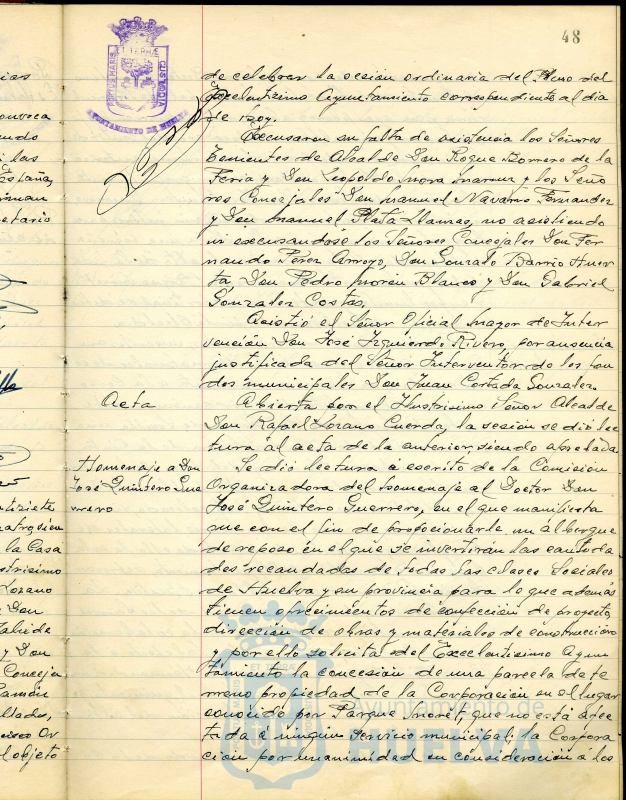 48
PORTUS MARIS ET TERRÆ CUSTODIA
AYUNTAMIENTO DE HUELVA
de celebrar la sesion ordinaria del Pleno del
Excelentisimo Ayuntamiento correspondiente al dia
de hoy.
Excusaron su falta de asistencia los Señores
Tenientes de Alcalde Don Roque Borrero de la
Feria y Don Leopoldo Mora y los Seño
res Concejales Don Manuel Navarro Fernandez
y Don Manuel Plata Llamas, no asistiendo
ni excusandose los Señores Concejales Don Fer
nando Perez Arroyo, Don Gonzalo Barrio Huer
ta, Don Pedro Morón Blanco y Don Gabriel
Gonzalez Costas.
Asistió el Señor Oficial Mayor de Inter
vención Don José Izquierdo Rivero, por ausencia
justificada del Señor Interventor de los fon
dos municipales Don Juan Cortada Gonzalez.
Acta
Abierta por el Ilustrisimo Señor Alcalde
Don Rafael Lozano Cuerda, la sesión se dió lec
tura al acta de la anterior, siendo aprobada
Homenaje a Don
José Quintero Gue
rrero
Se dió lectura a escrito de la Comisión
Organizadora del homenaje al Doctor Don
José Quintero Guerrero, en el que manifiesta
que con el fin de propocionarle un albergue
de reposo en el que se invertirán las cantida
des recaudadas de todas las clases sociales
de Huelva y su provincia para lo que además
tienen ofrecimientos de confección de proyecto,
dirección de obras y materiales de construcción
y por ello solicita del Excelentisimo Ayun
tamiento la concesión de una parcela de te
rreno propiedad de la Corporación en el lugar
conocido por Parque Moret, que no está afec
tada a ningun servicio municipal; la Corpora
ción por unanimidad en consideración a los
ias
onvoca
ando
las
taña,
etario
la Casa
strisimo
Lozano
Don
y Don
Conceja
Ramón
llado,
l objeto
Ayuntamiento de
HUELVA